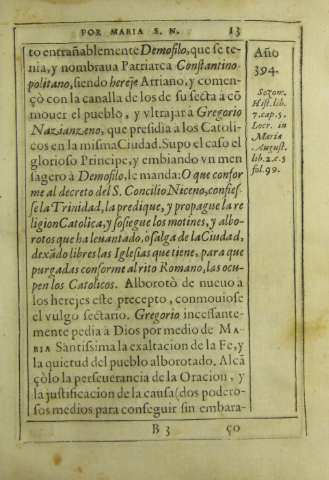 POR MARIA S. N. 13
to entrañablemente Demofilo, que se te-
nia, y nombraua Patriarca Constantino-
politano, siendo hereje Arriano, y comen-
çò con la canalla de los de su secta à cō
mouer el pueblo, y vltrajar à Gregorio
Nazianzeno, que presidia à los Catoli-
cos en la misma Ciudad. Supo el caso el
glorioso Principe, y embiando vn men
sagero à Demofilo, le manda: O que confor
me al decreto del S. Concilio Niceno, confies-
se la Trinidad, la predique, y propague la re
ligion Catolica, y sosiegue los motines, y albo-
rotos que ha leuantado, o salga de la Ciudad,
dexādo libres las Iglesias que tiene, para que
purgadas conforme al rito Romano, las ocu-
pen los Catolicos. Alborotò de nueuo a
los herejes este precepto, conmouiose
el vulgo sectario. Gregorio incessante-
mente pedia à Dios por medio de MA-
RIA Santissima la exaltacion de la Fe, y
la quietud del pueblo alborotado. Alcā
çòlo la perseuerancia de la Oracion, y
la justificacion de la causa (dos podero-
sos medios para conseguir sin embara-
B 3 ço
Año
394.
Sozom.
Hist. lib.
7. cap. 5.
Locr. in
Maria
August.
lib. 2. c. 5
fol. 99.